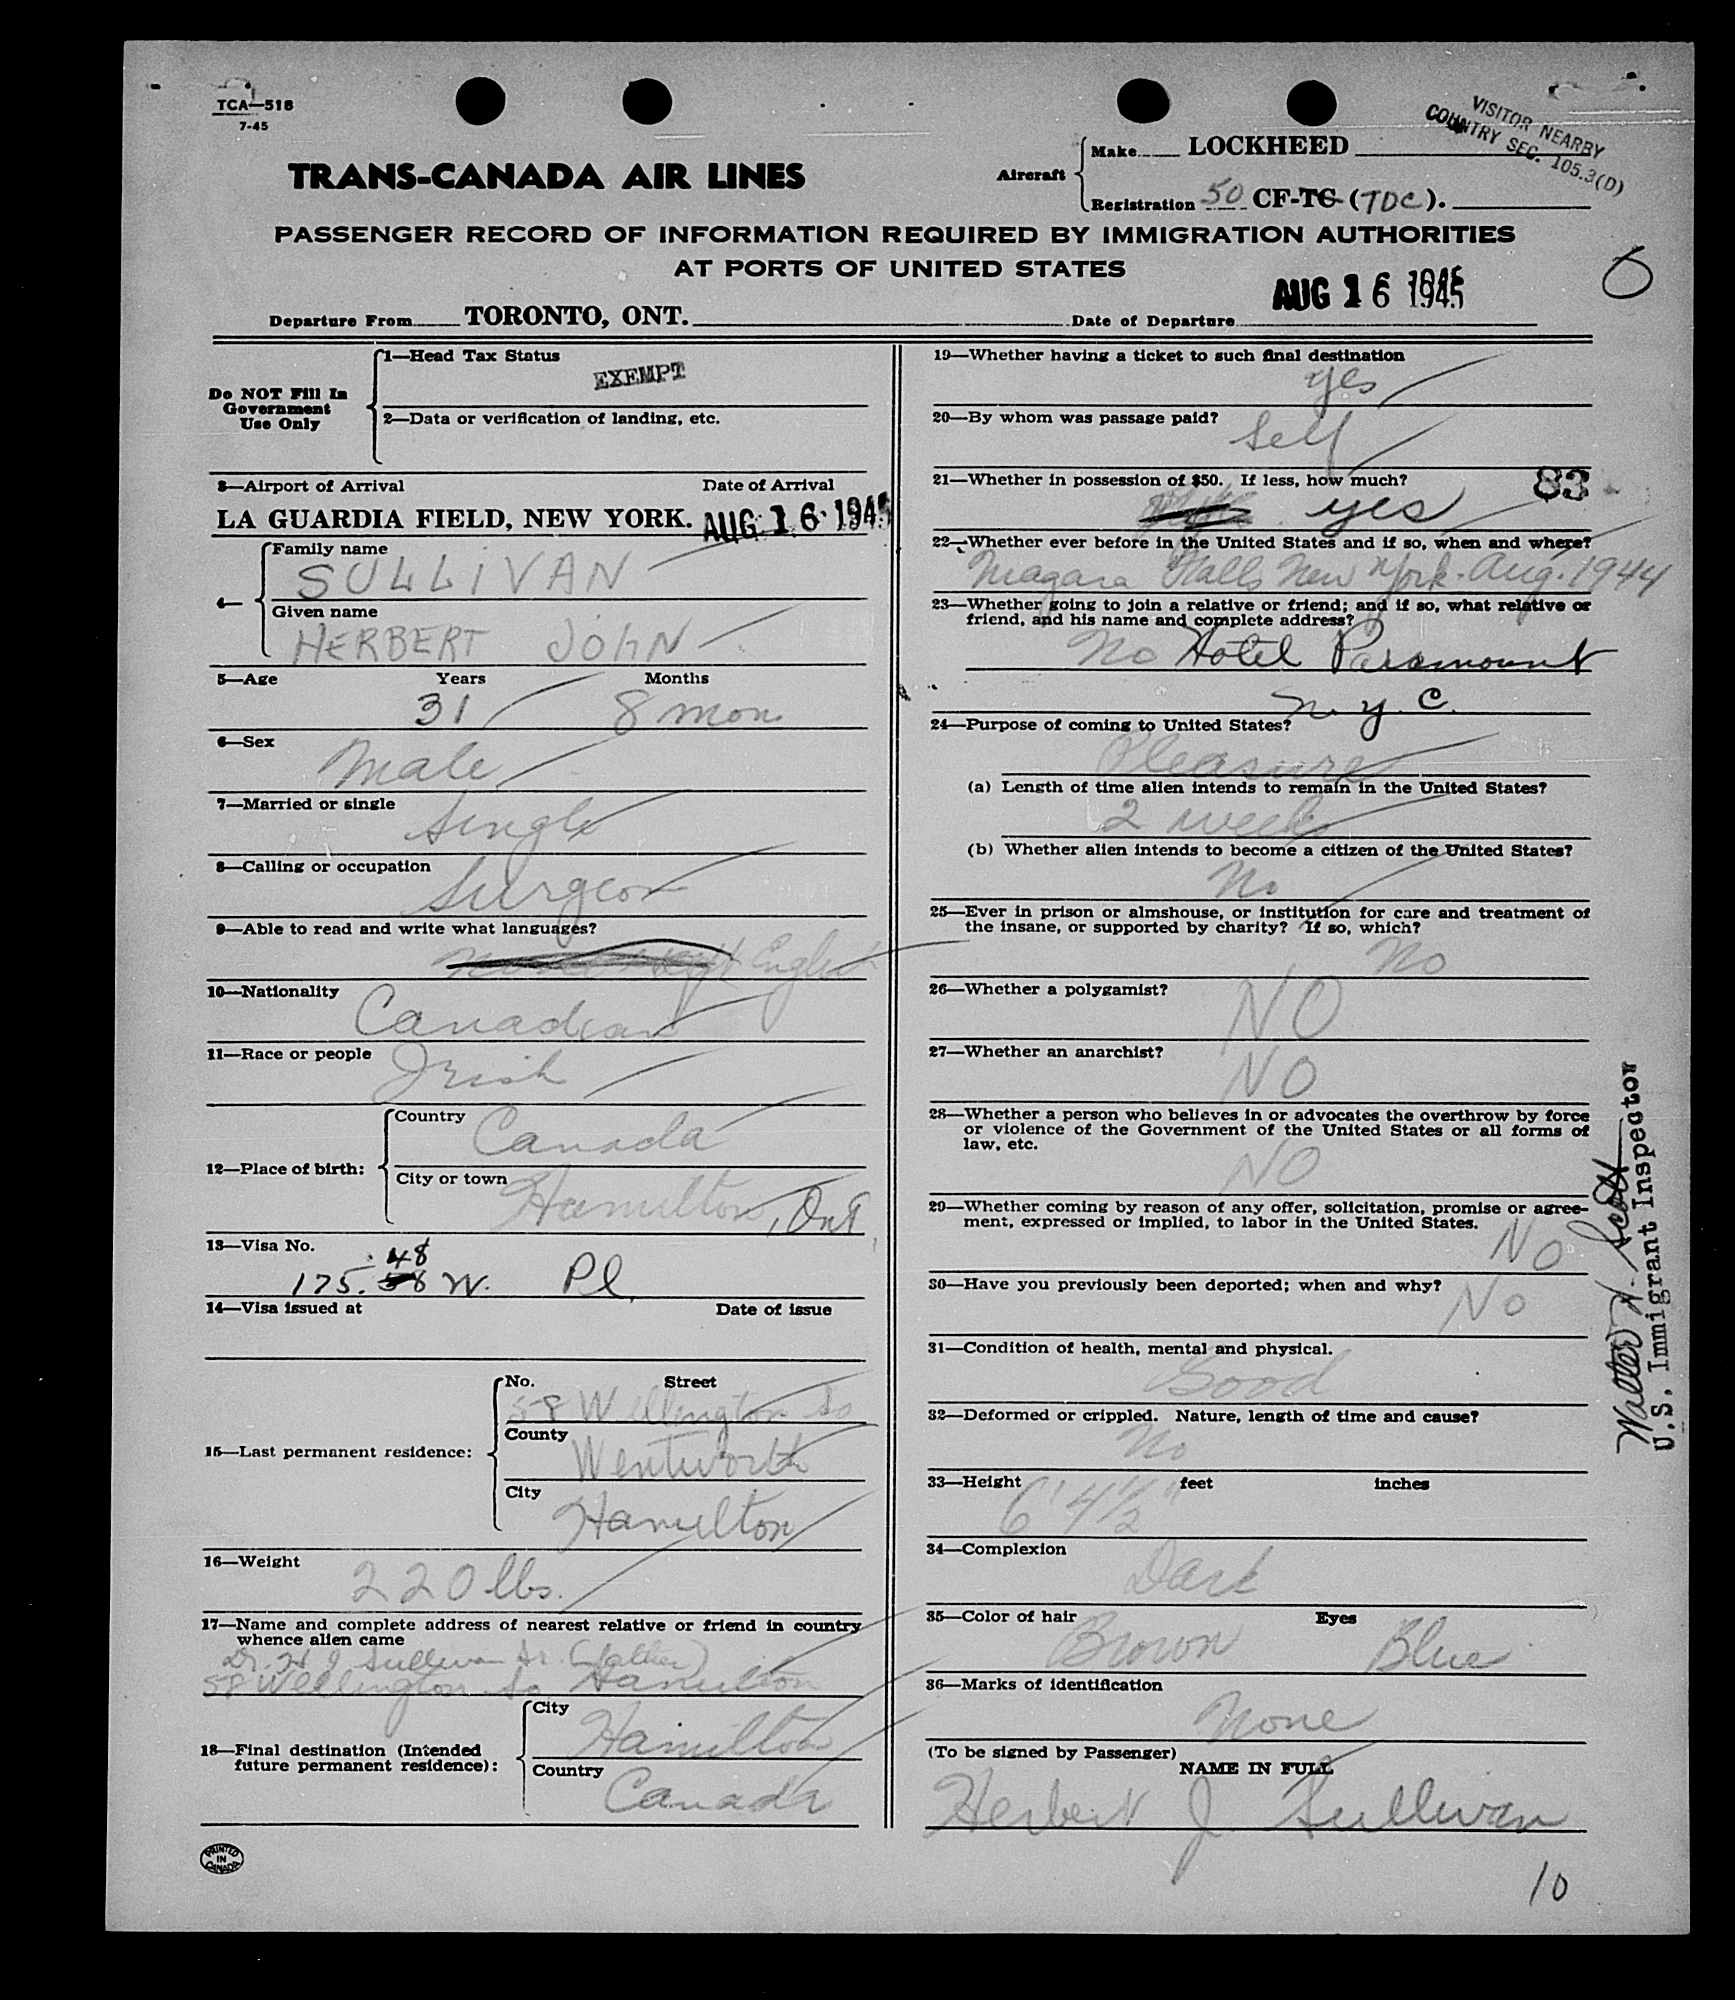 TCA—518
7-45
VISITOR NEARBY
COUNTRY SEC. 105.3(D)
TRANS-CANADA AIR LINES
Aircraft
Make LOCKHEED
Registration 50 CF-TC (TDC).
PASSENGER RECORD OF INFORMATION REQUIRED BY IMMIGRATION AUTHORITIES
AT PORTS OF UNITED STATES
Departure From TORONTO, ONT.
Date of Departure AUG 16 1945
Do NOT Fill In
Government
Use Only
1—Head Tax Status
EXEMPT
2—Data or verification of landing, etc.
3—Airport of Arrival Date of Arrival
LA GUARDIA FIELD, NEW YORK. AUG 16 1945
4—
Family name
SULLIVAN
Given name
HERBERT JOHN
5—Age Years Months
31 8 mon
6—Sex
Male
7—Married or single
Single
8—Calling or occupation
Surgeon
9—Able to read and write what languages?
English
10—Nationality
Canadian
11—Race or people
Irish
12—Place of birth:
Country
Canada
City or town
Hamilton, Ont
13—Visa No.
48
175. 58 W. Pl.
14—Visa issued at Date of issue
15—Last permanent residence:
No. Street
58 Wellington So
County
Wentworth
City
Hamilton
16—Weight
220 lbs.
17—Name and complete address of nearest relative or friend in country
whence alien came
Dr. H J Sullivan Sr. (father)
58 Wellington So Hamilton
18—Final destination (Intended
future permanent residence):
City
Hamilton
Country
Canada
PRINTED
IN
CANADA
19—Whether having a ticket to such final destination
yes
20—By whom was passage paid?
Self
21—Whether in possession of $50. If less, how much?
83
yes
22—Whether ever before in the United States and if so, when and where?
Niagara Falls New York. Aug. 1944
23—Whether going to join a relative or friend; and if so, what relative or
friend, and his name and complete address?
No Hotel Paramount
N.Y.C.
24—Purpose of coming to United States?
Pleasure
(a) Length of time alien intends to remain in the United States?
2 weeks
(b) Whether alien intends to become a citizen of the United States?
No
25—Ever in prison or almshouse, or institution for care and treatment of
the insane, or supported by charity? If so, which?
No
26—Whether a polygamist?
NO
27—Whether an anarchist?
NO
28—Whether a person who believes in or advocates the overthrow by force
or violence of the Government of the United States or all forms of
law, etc.
NO
29—Whether coming by reason of any offer, solicitation, promise or agree-
ment, expressed or implied, to labor in the United States.
NO
30—Have you previously been deported; when and why?
No
31—Condition of health, mental and physical.
Good
32—Deformed or crippled. Nature, length of time and cause?
No
33—Height feet inches
6' 4½"
34—Complexion
Dark
35—Color of hair Eyes
Brown Blue
36—Marks of identification
None
(To be signed by Passenger)
NAME IN FULL
Herbert J. Sullivan
10
Walter N. Scott
U.S. Immigrant Inspector